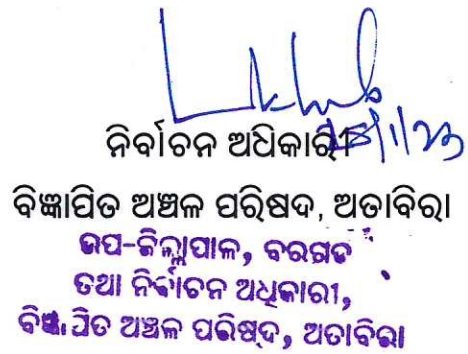 ନିର୍ବାଚନ ଅଧିକାରୀ
ବିଜ୍ଞାପିତ ଅଞ୍ଚଳ ପରିଷଦ, ଅତାବିରା
ଉପ-ଜିଲ୍ଲାପାଳ, ବରଗଡ
ତଥା ନିର୍ବାଚନ ଅଧିକାରୀ,
ବିଜ୍ଞାପିତ ଅଞ୍ଚଳ ପରିଷଦ, ଅତାବିରା